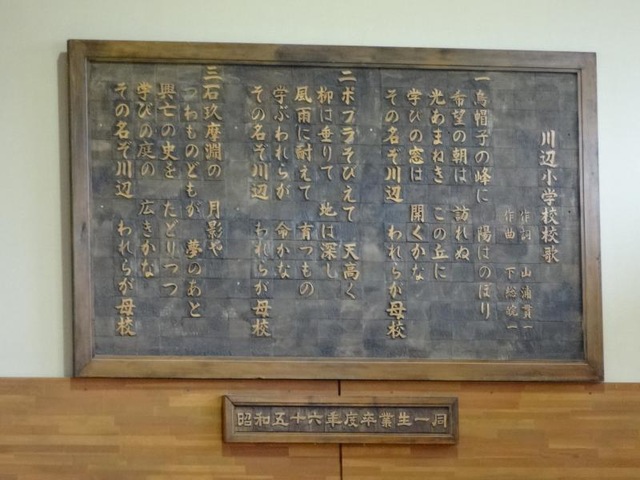 川辺小学校校歌
作詞 山浦貫一
作曲 下総皖一
一 烏帽子の峰に 陽はのぼり
希望の朝は 訪れぬ
光あまねき この丘に
学びの窓は 開くかな
その名ぞ川辺 われらが母校
二 ポプラそびえて 天高く
柳は垂りて 地は深し
風雨に耐えて 育つもの
学ぶわれらが 命かな
その名ぞ川辺 われらが母校
三 石玖摩淵の 月影や
つわものどもが 夢のあと
興亡の史を たどりつつ
学びの庭の 広きかな
その名ぞ川辺 われらが母校
昭和五十六年度卒業生一同